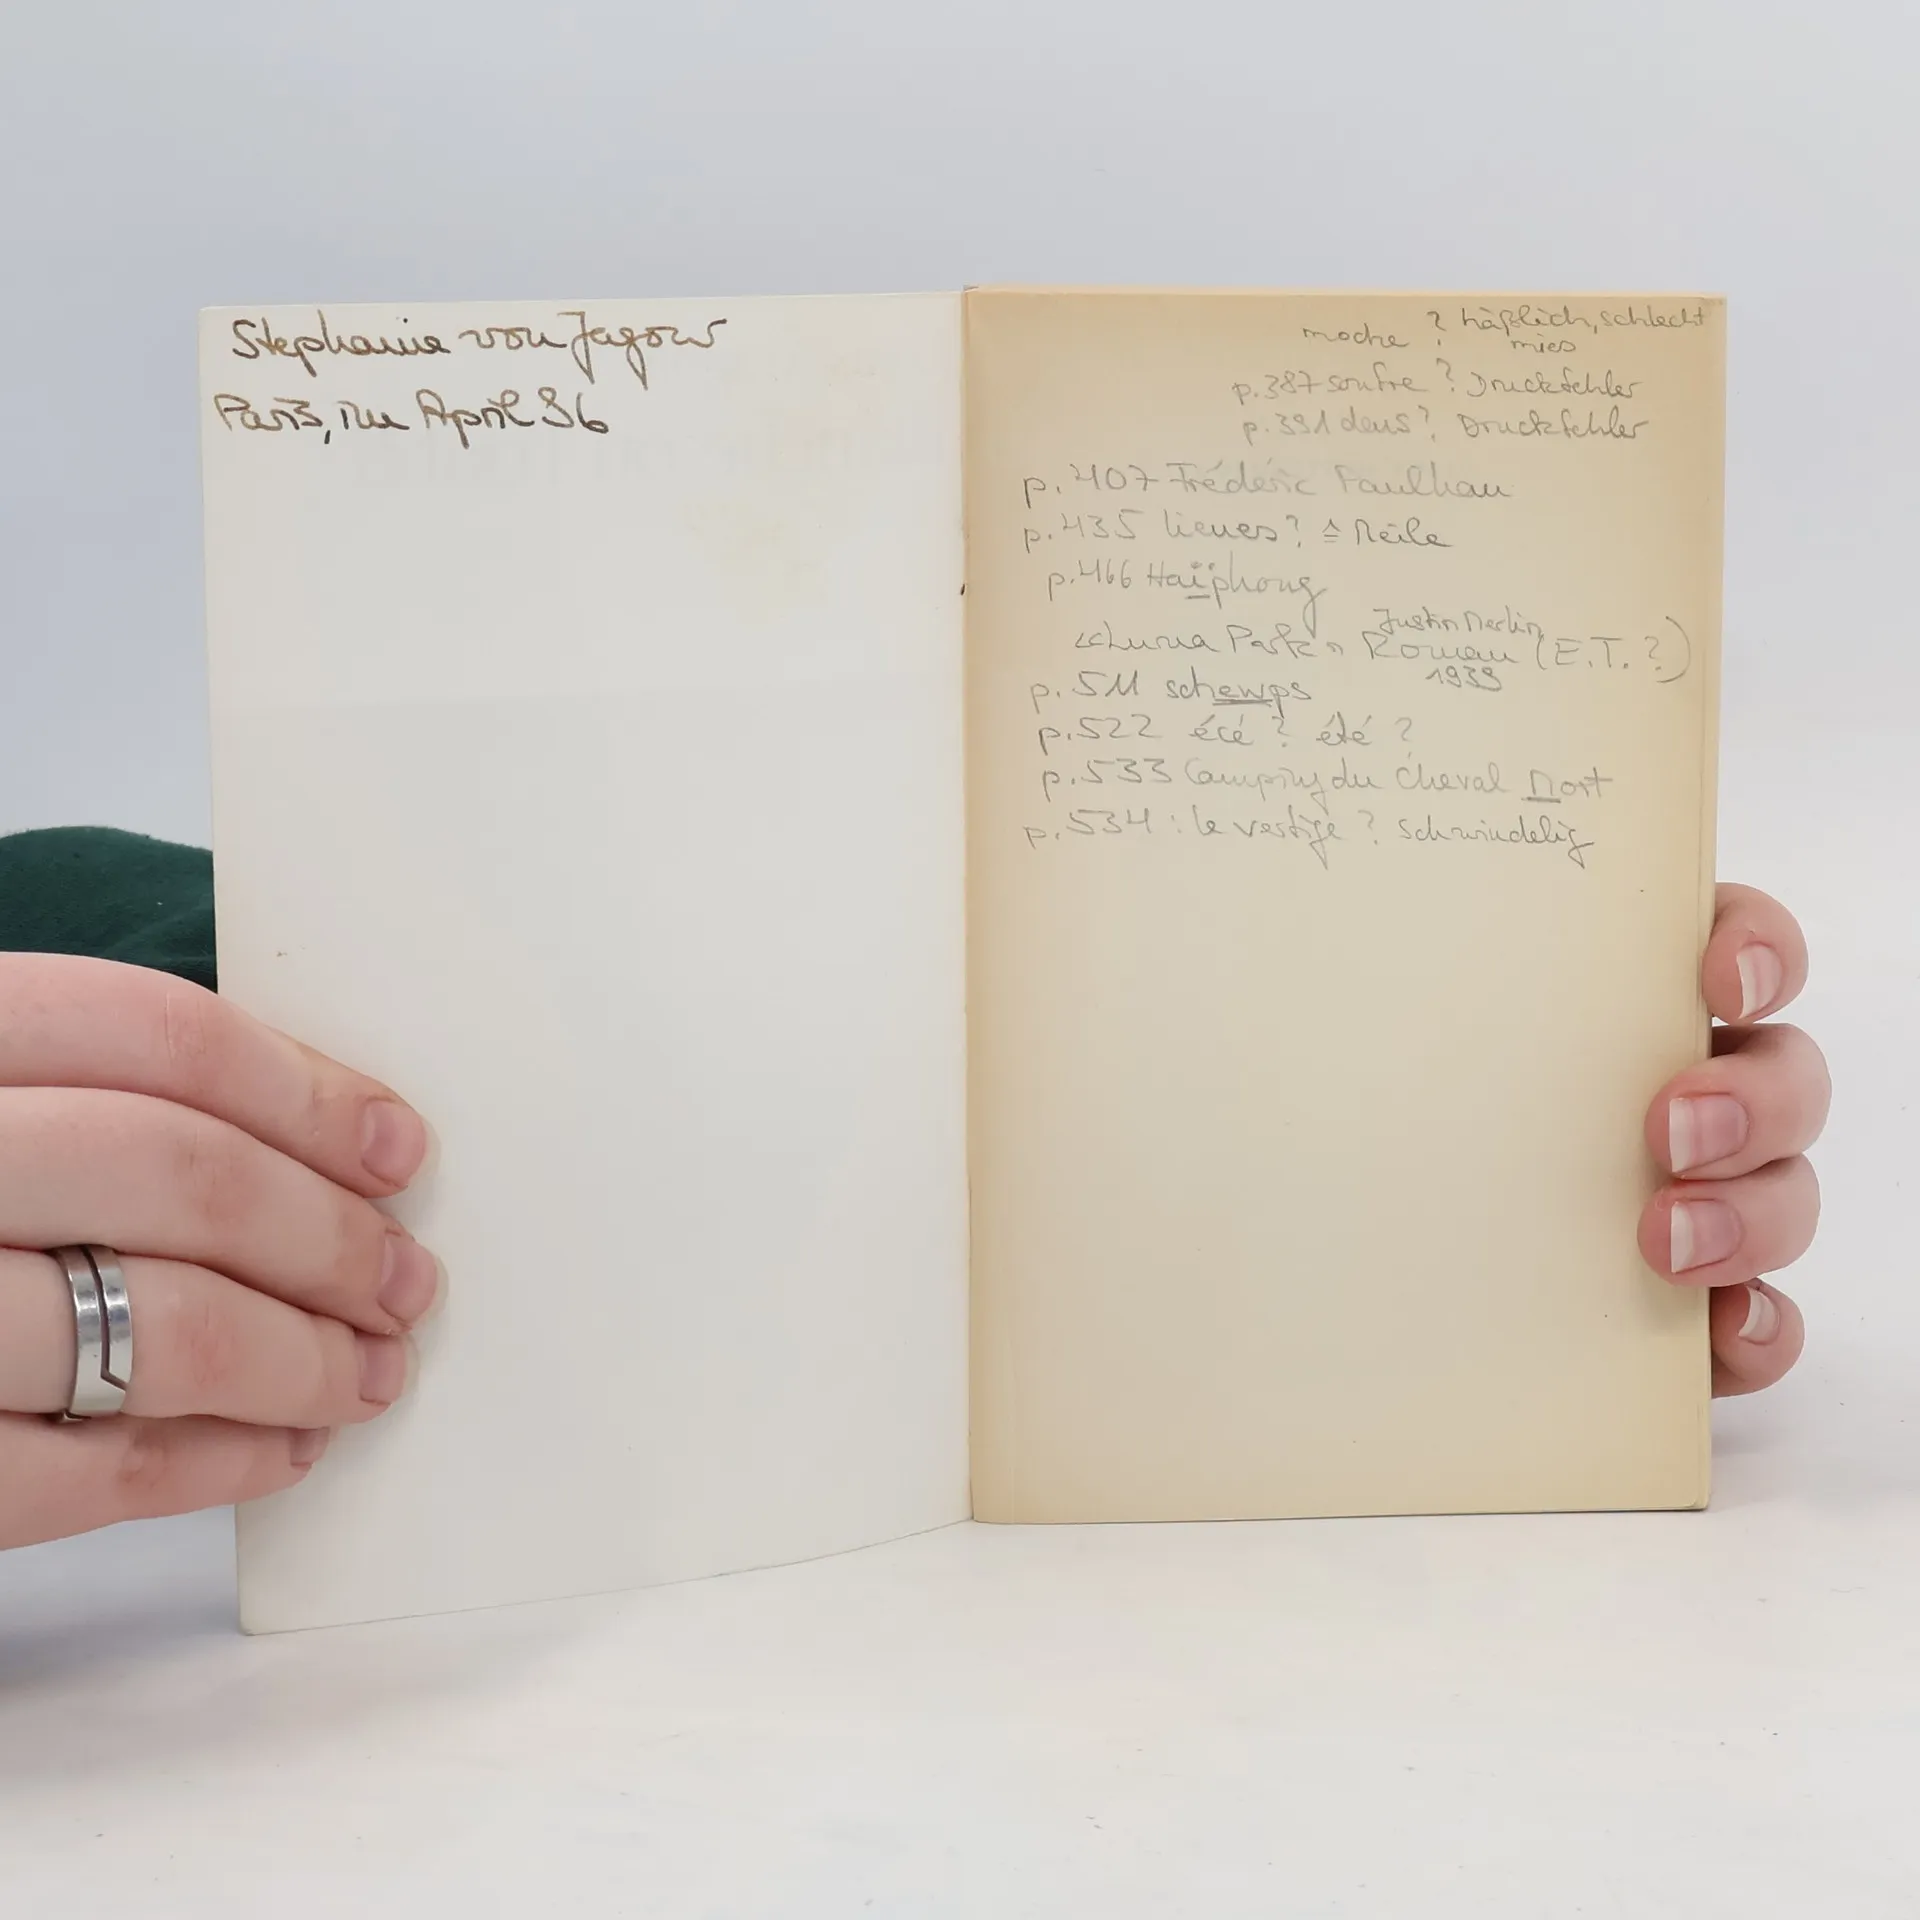 Stephanie von Jagow
Paris, im April 96
moche ? häßlich, schlecht
mies
p. 387 soufre ? Druckfehler
p. 391 deus ? Druckfehler
p. 407 Frédéric Paulhan
p. 435 lieues ? ≙ Meile
p. 466 Haïphong
Justin Merlin
«Luna Park» Roman (E.T. ?)
1939
p. 511 schewps
p. 522 écé ? été ?
p. 533 Camping du Cheval Mort
p. 534 : le vertige ? schwindelig